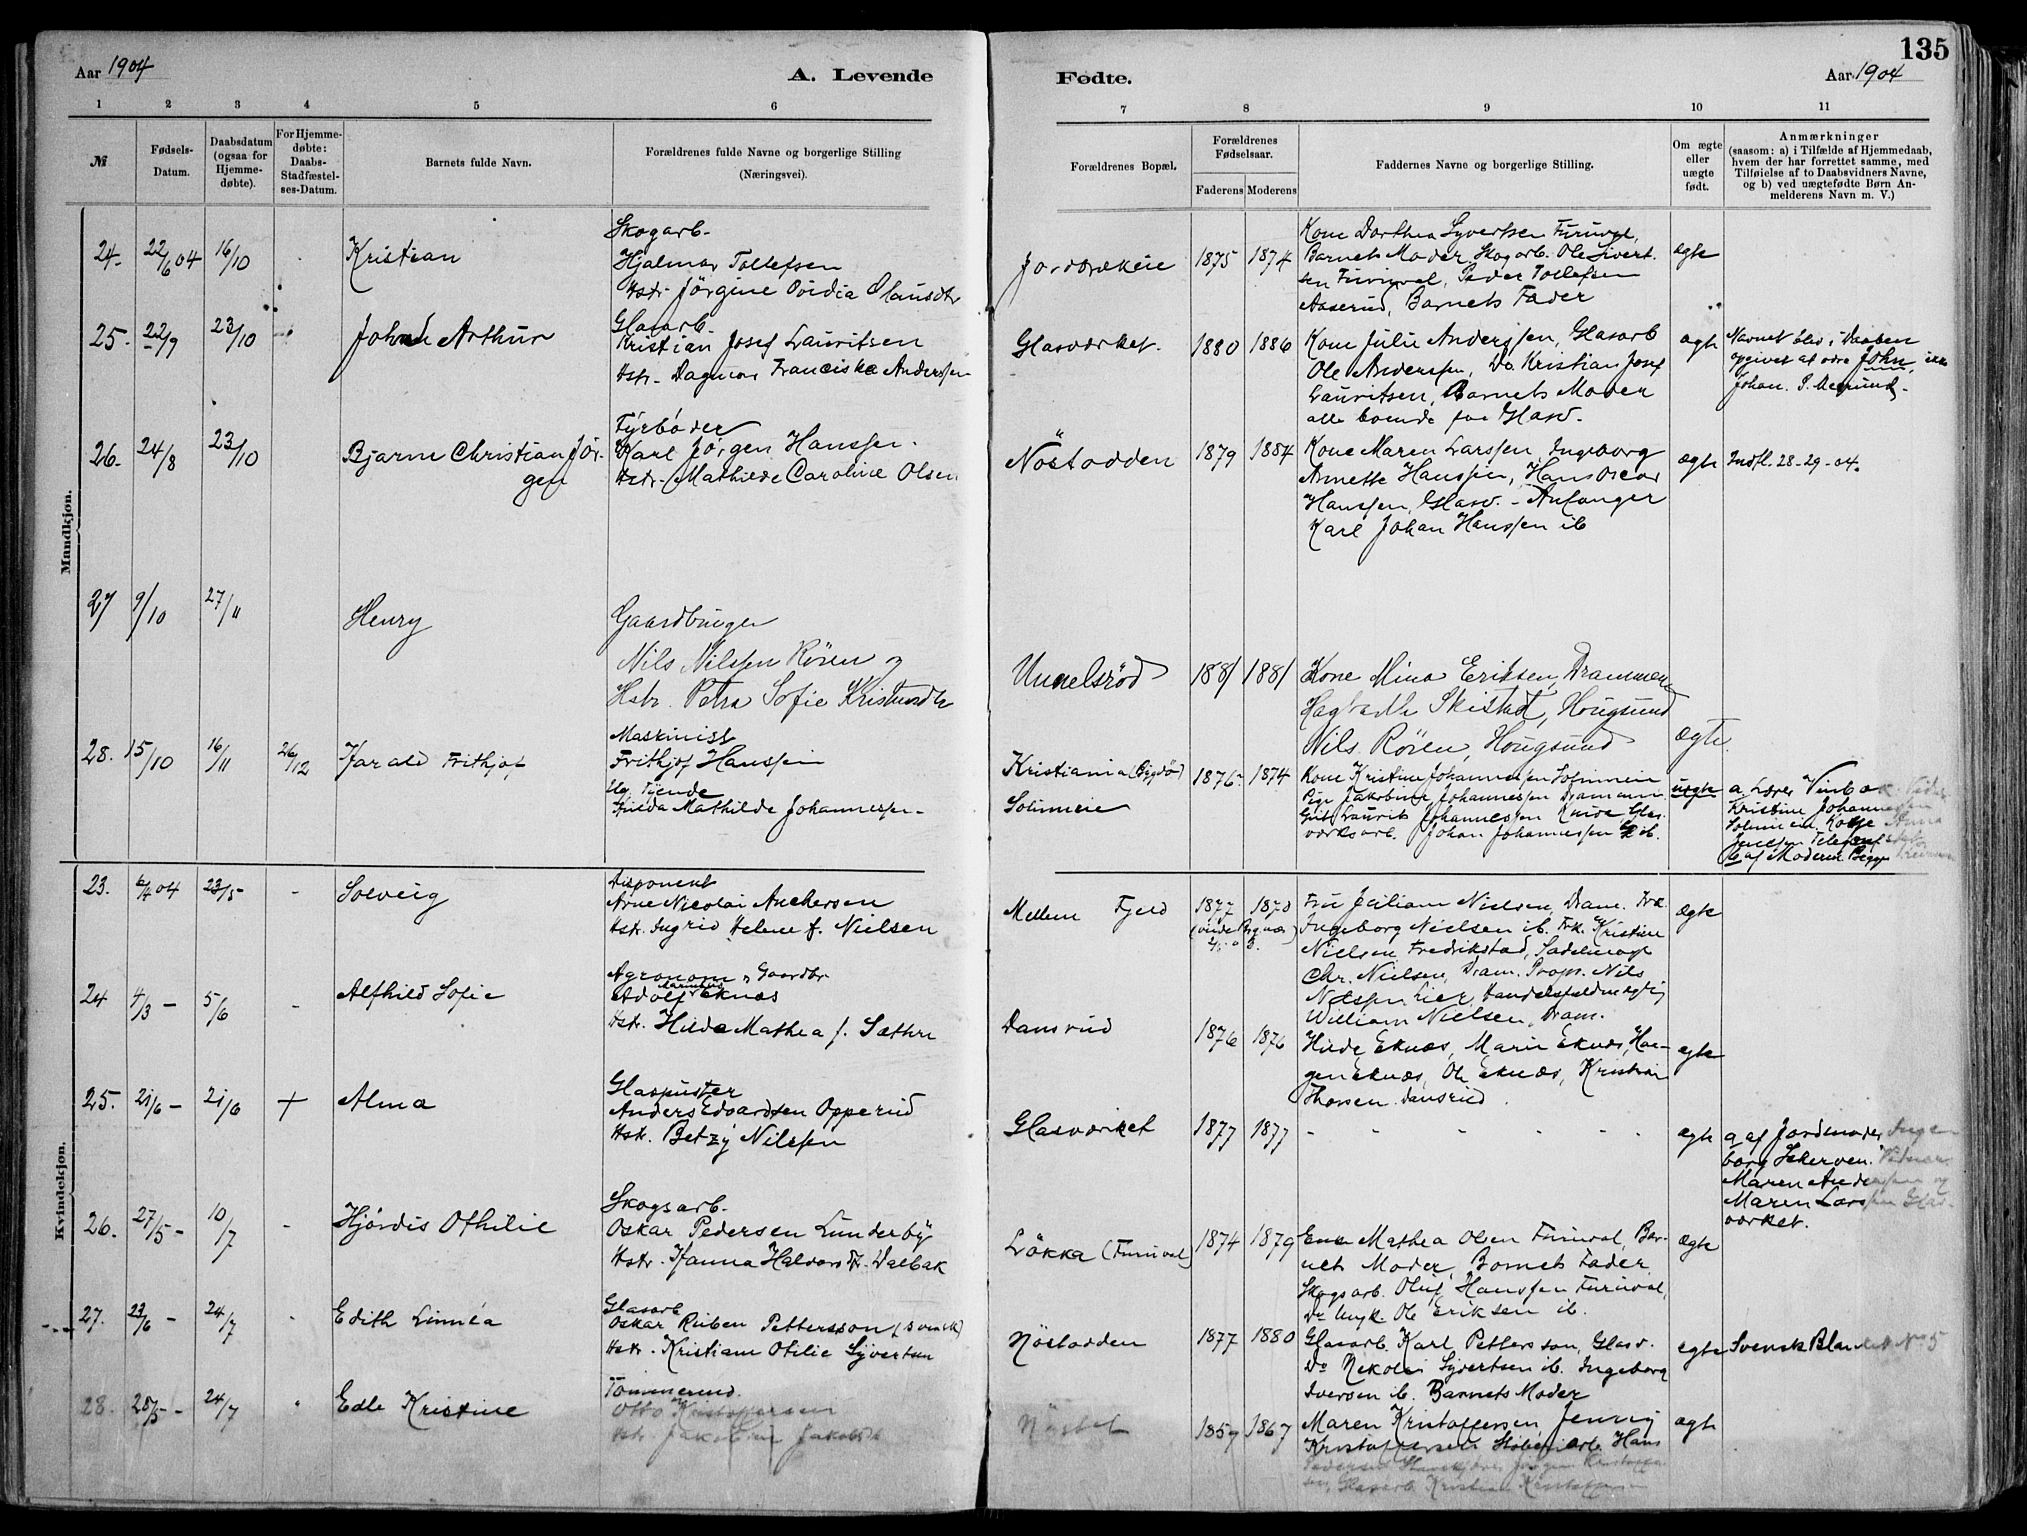 135
Aar 1904
A. Levende
Fødte.
Aar 1904
1 2 3 4 5 6 7 8 9 10 11
№
Fødsels-
Datum.
Daabsdatum
(ogsaa for
Hjemme-
døbte).
For Hjemme-
døbte:
Daabs-
Stadfæstel-
ses-Datum.
Barnets fulde Navn.
Forældrenes fulde Navne og borgerlige Stilling
(Næringsvei).
Forældrenes Bopæl.
Forældrenes
Fødselsaar.
Faderens Moderens
Faddernes Navne og borgerlige Stilling.
Om ægte
eller
uægte
født.
Anmærkninger
(saasom: a) i Tilfælde af Hjemmedaab,
hvem der har forrettet samme, med
Tilføielse af to Daabsvidners Navne,
og b) ved uægtefødte Børn An-
melderens Navn m. V.)
Mandkjøn.
24. 22/6 04 16/10 Kristian
Skogarb.
Hjalmar Tollefsen
Hstr. Jörgine
1875 1874
Kone Dorthea Syvertsen Furuval,
Barnets Moder Skogarb. Ole Sivert-
sen Furuval, Peder Tollefsen
Aaserud, Barnets Fader
ægte
25. 22/9 23/10 Arthur
Glasarb.
Kristian Josef Lauritsen
Hstr. Dagmar Franciska Anderssen
Glasværket. 1880 1886
Kone Julie Anderssen, Glasarb
Ole Anderssen, Do Kristian Josef
Lauritsen, Barnets Moder
alle boende paa Glasv.
ægte
Navnet blev i Daaben
opgivet at være John, ikke
Johan.
26. 24/8 23/10 Bjarne Christian Jör-
gen
Fyrbøder
Karl Jørgen Hanssen.
Hstr. Mathilde Caroline Olsen
Nöstodden 1879 1884
Kone Maren Larssen, Ingeborg
Annette Hanssen, Hans Oscar
Hanssen, Glasv. - Anfanger
Karl Johan Hanssen ib
ægte
Indfl. 28-29-04.
27 9/10 27/11 Henry
Gaardbruger
Nils Nilssen Rören og
Hstr. Petra Sofie
1881 1881
Kone Mina Eriksen, Drammen
Skistad, Hougsund
Nils Røren, Hougsund
ægte.
28. 15/10 16/11 26/12 Harald Frithjof
Maskinist
Frithjof Hanssen
Ug. Tjende
Hilda Mathilde Johannessen
Kristiania (Bygdö)
1876 1874
Kone Kristine Johannessen
Pige Jakobine Johannessen Drammen
Gut Laurits Johannessen
værksarb. Johan Johannessen ib.
uægte
a. Lærer
Kristine Johannessen
Kvindekjøn.
23. 04 23/5 - Solveig
Disponent
Arne Nicolai Anchersen
Hstr. Ingrid Helene f. Nielsen
Mellem Fjeld 1877 1870
Nielsen, Dram. Frk.
Ingeborg Nielsen ib. Frk. Kristine
Nielsen, Fredrikstad, Sadelmager
Chr. Nielsen, Dram. Prop. Nils
Nilssen, Lier, Handelsfuldmægtig
William Nielsen, Dram.
ægte
24 4/3 - 5/6 - Alfhild Sofie
Agronom, Gaardbr.
Adolf Eknæs
Hstr. Hilda Mathea f. Sæthre
Dansrud 1876 1876
Hilda Eknæs, Marie Eknæs, Haa-
gen Eknæs, Ole Eknæs, Kristian
Thorsen. Dansrud.
ægte
25. 21/6 - 21/6 + Alma
Glaspuster
Anders Edvardsen Opperud
Hstr. Betzy Nilssen
Glasværket 1877 1877
- - - - - -
ægte
a af Jordmoder Inge-
borg
Maren
Maren Larssen Glas-
værket.
26. 27/5 - 10/7 - Hjördis Othilie
Skogsarb.
Oskar Pedersen Lunderby
Hstr. Hanna Halvorsdtr. Dalbak
Løkka (Furuval) 1874 1879
Mathea Olsen Furuval, Bar-
nets Moder, Barnets Fader,
Skogsarb. Oluf Hanssen Furuval,
Do Ungk. Ole Eriksen ib.
ægte
27. 23/6 - 24/7 - Edith Linnéa
Glasarb
Oskar Ruben Pettersson (svensk)
Hstr. Kristiane Otilie Syvertsen
Nöstodden 1877 1880
Glasarb. Karl Pettersson, Glasv.
Do Nikolai Syvertsen ib. Ingeborg
Iversen ib. Barnets Moder
ægte
Svensk Blanket No 5
28. 24/7 Edle Kristine
Tömmermd.
Otto Kristoffersen
Hstr. Jakobine
1857 1867
Maren Kristoffersen, Jenny
Kristoffersen Hans
Pedersen
Glasarb Kristian Kristoffersen
ægte